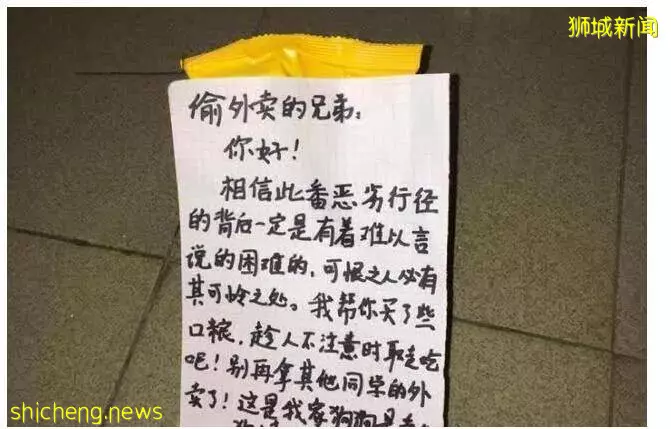 狮城新闻
偷外卖的兄弟:
你好!
相信此番恶劣行径
的背后一定是有着难以言
说的困难的,可恨之人必有
其可怜之处。我帮你买了些
口粮,趁人不注意时取走吃
吧!别再拿其他同学的外
卖了!这是我家狗狗最
shicheng.news